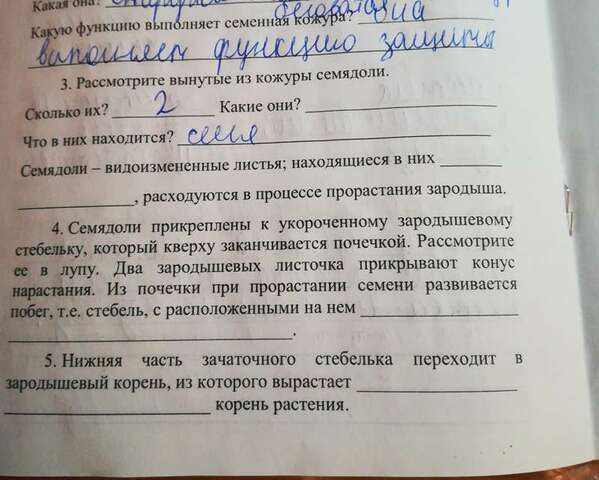 Какая она?
Какую функцию выполняет семенная кожура? Она
выполняет функцию защиты
3. Рассмотрите вынутые из кожуры семядоли.
Сколько их? 2 Какие они?
Что в них находится? семя
Семядоли – видоизмененные листья; находящиеся в них
, расходуются в процессе прорастания зародыша.
4. Семядоли прикреплены к укороченному зародышевому
стебельку, который кверху заканчивается почечкой. Рассмотрите
ее в лупу. Два зародышевых листочка прикрывают конус
нарастания. Из почечки при прорастании семени развивается
побег, т.е. стебель, с расположенными на нем
.
5. Нижняя часть зачаточного стебелька переходит в
зародышевый корень, из которого вырастает
корень растения.